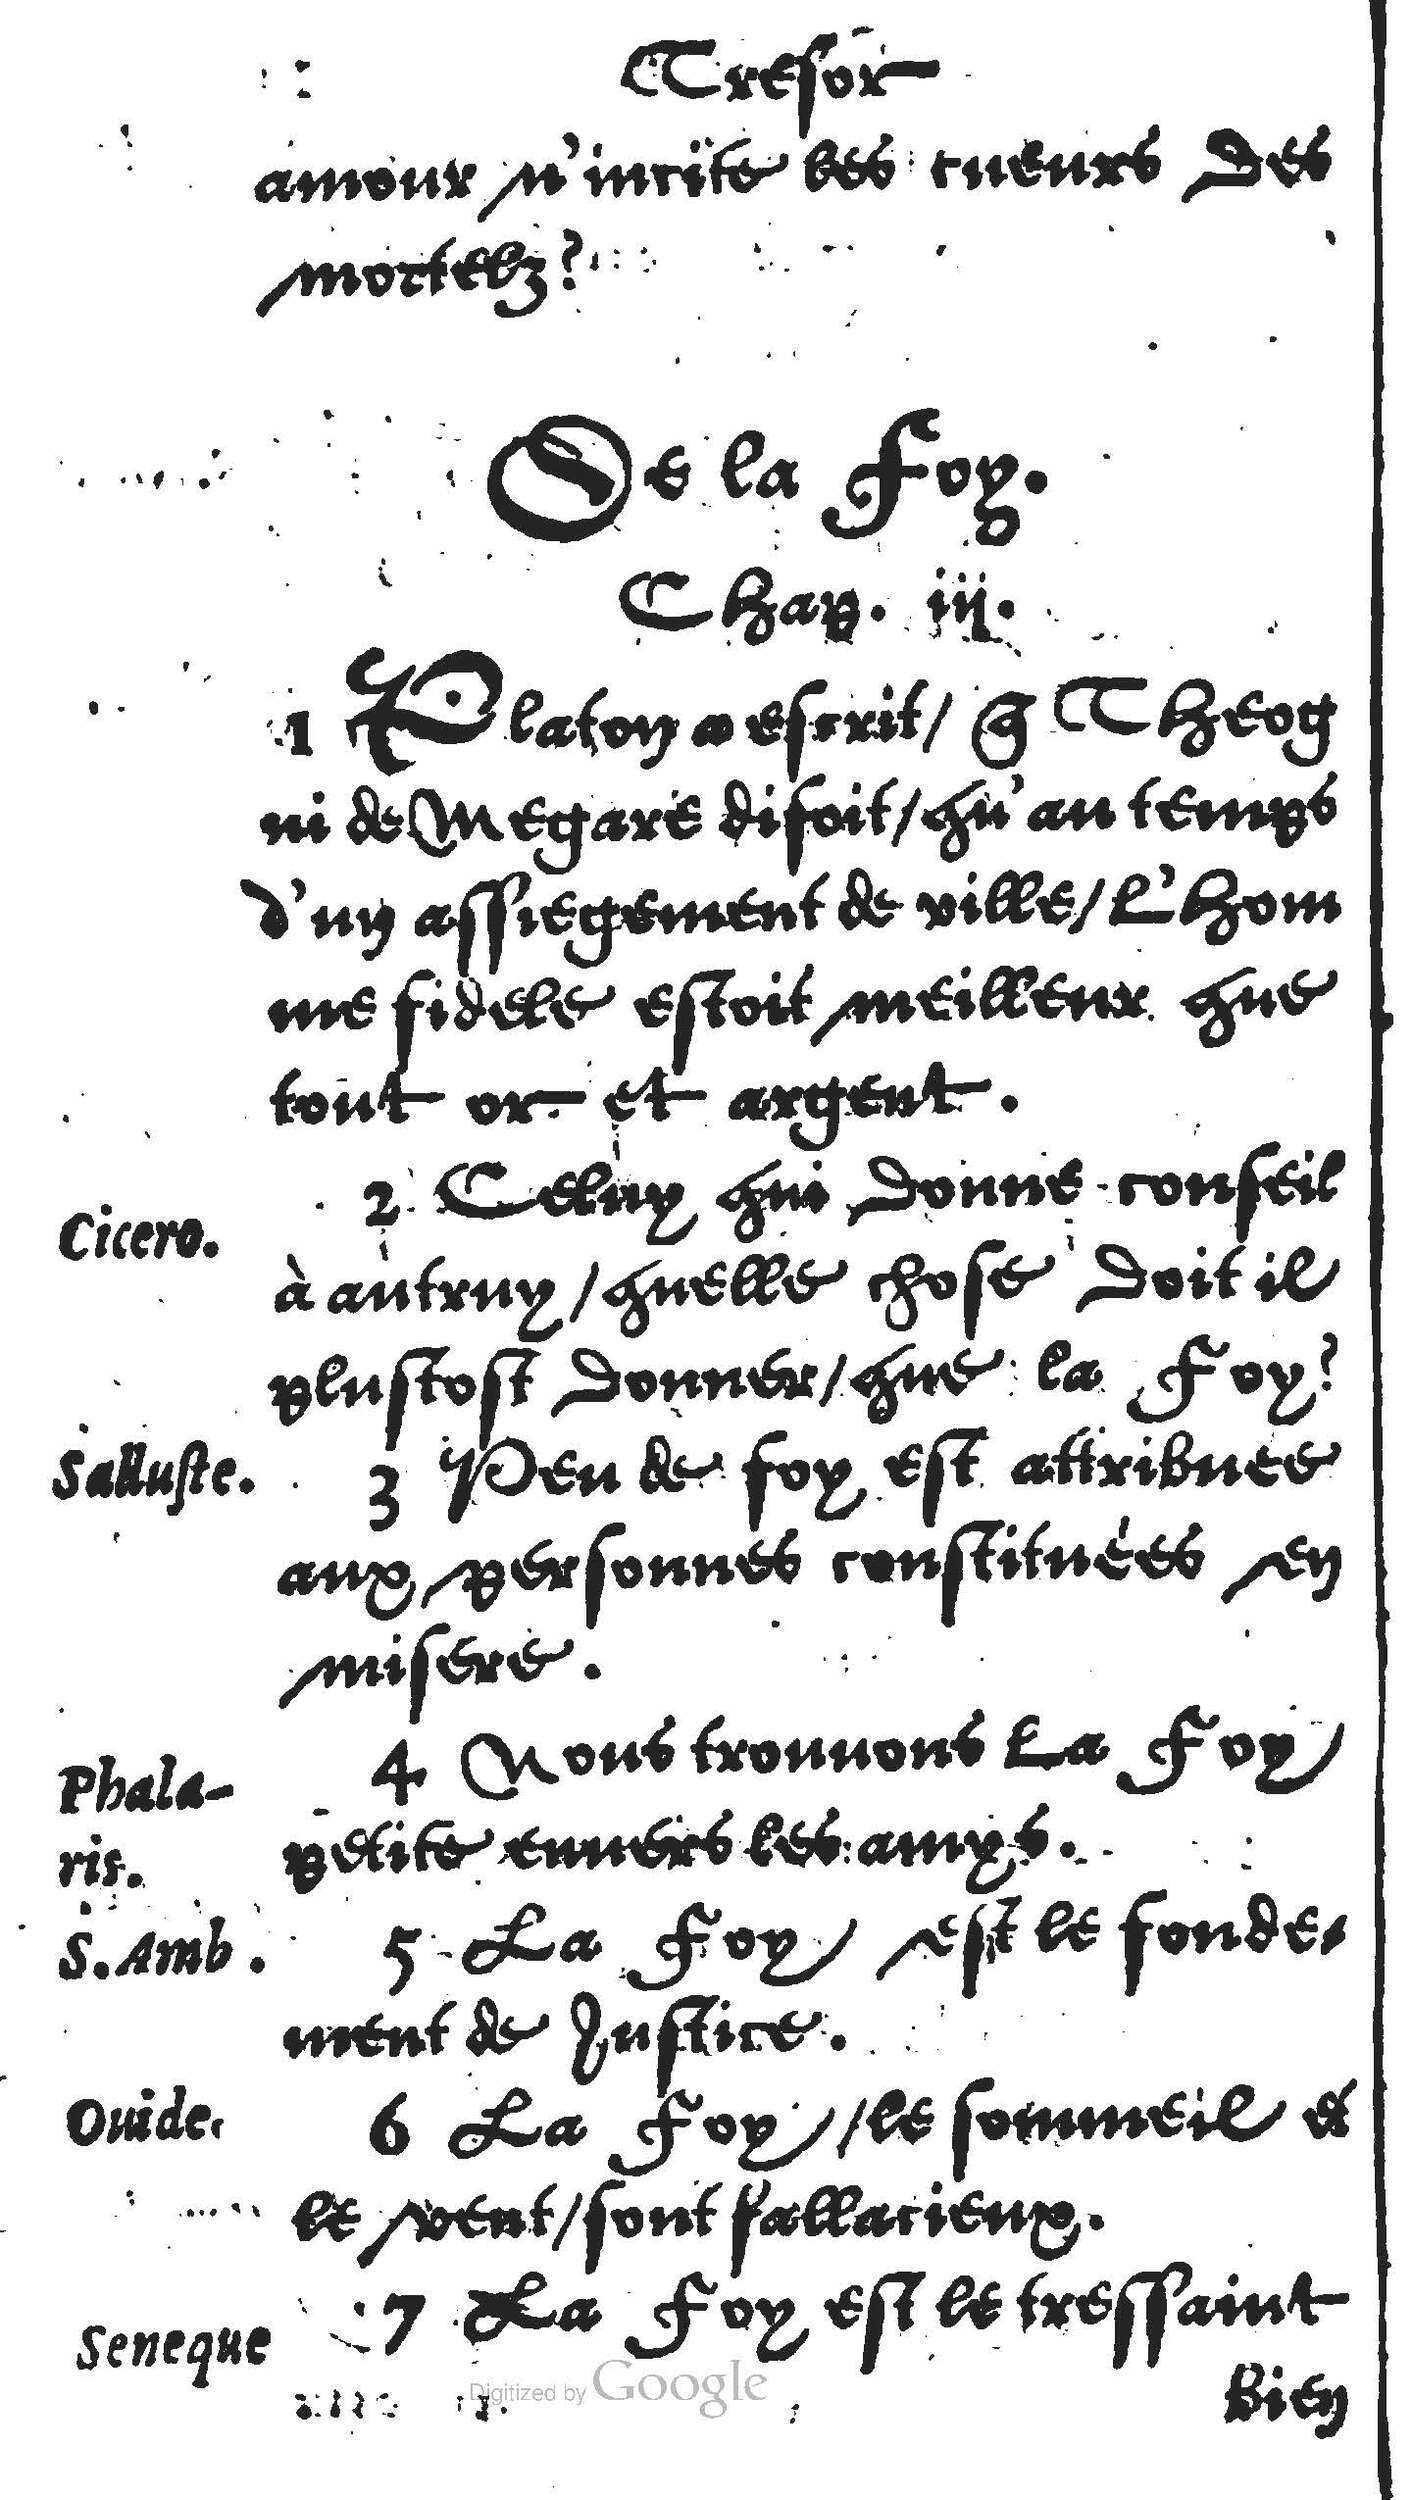 Tresor
amour n'incite les cueurs des
mortelz?
De la Foy.
Chap. iij.
1 Platon a escrit/ q̃ Theog
ni de Megare disoit/ qu'au temps
d'un assiegement de ville/ L'hom
me fidele estoit meilleur que
tout or et argent.
Cicero.
2 Celuy qui donne conseil
à autruy/ quelle chose doit il
plustost donner/ que la Foy?
Salluste.
3 Peu de foy est attribuee
aux personnes constituées en
misere.
Phala-
ris.
4 Nous trouuons La Foy
petite enuers les amys.
S. Amb.
5 La Foy est le fonde-
ment de Justice.
Ouide.
6 La Foy/ le sommeil &
le vent/ sont fallacieux.
Seneque
7 La Foy est le tressaint
Bien
Digitized by Google